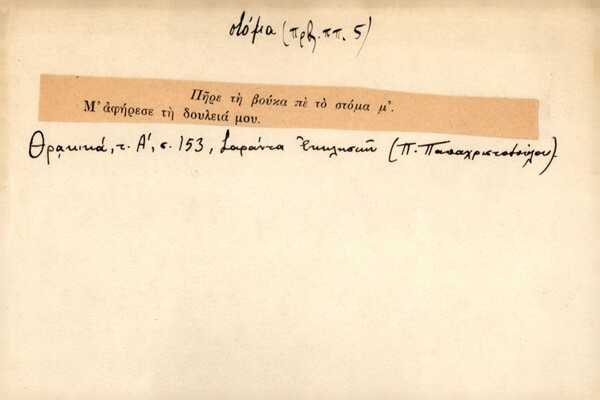 στόμα (πρβ. ππ. 5)
Πῆρε τὴ βούκα πὲ τὸ στόμα μ'.
Μ' ἀφήρεσε τὴ δουλειά μου.
Θρᾳκικά, τ. Α', σ. 153, Σαράντα Ἐκκλησιῶν (Π. Παπαχριστοδούλου).